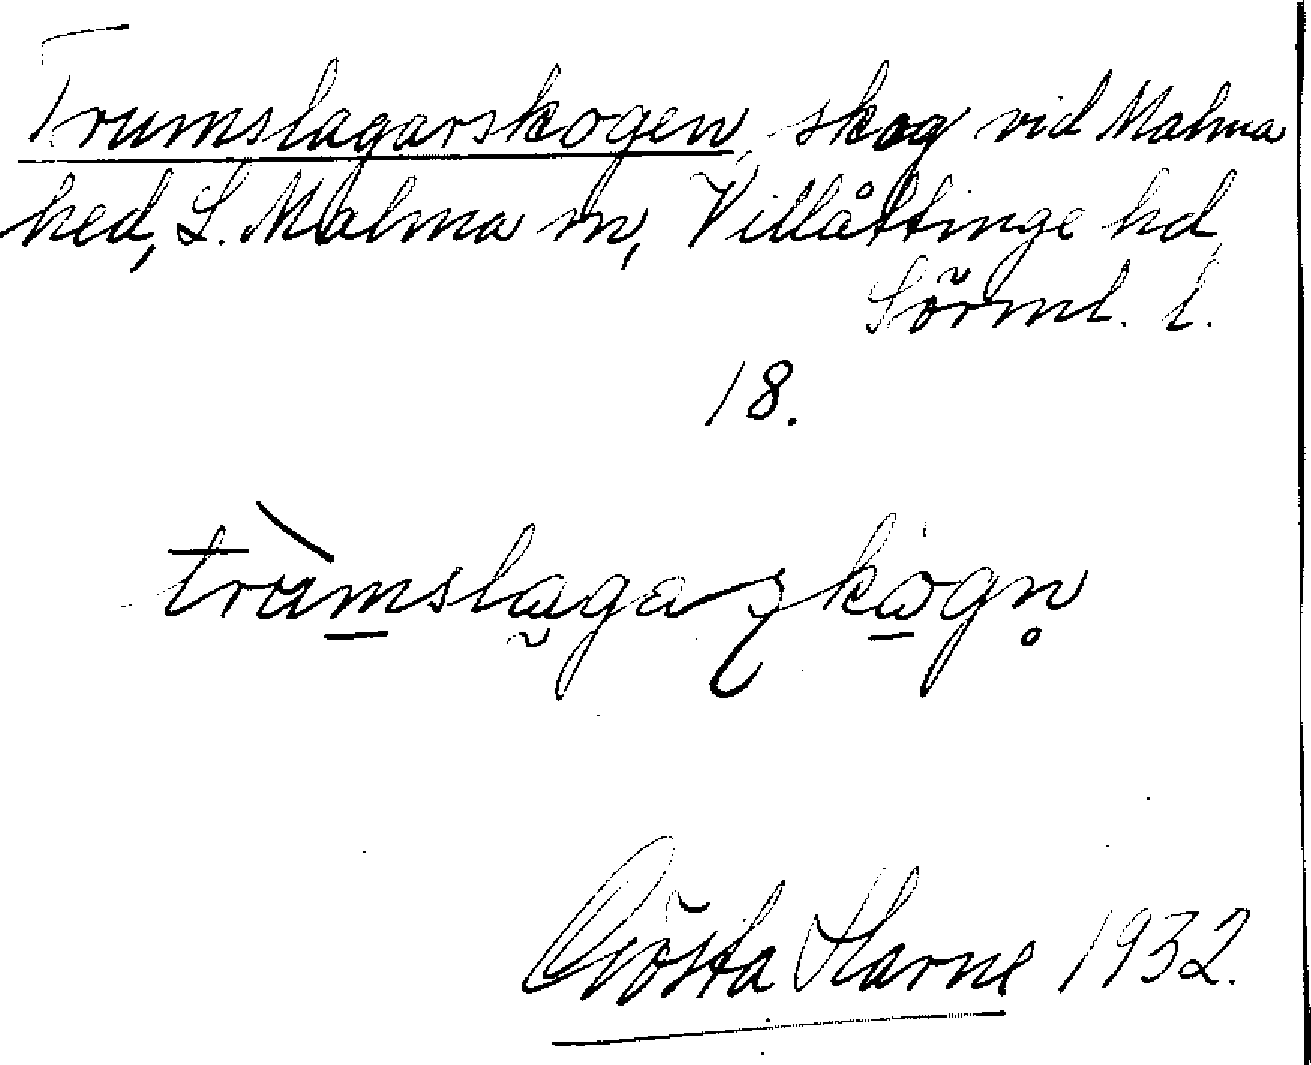 Trumslagarskogen, skog vid Malma
hed, L. Malma sn, Villåttinge hd,
Sörml. l.
18.
trùmslagaʂkogn̥
Gösta Harne 1932.